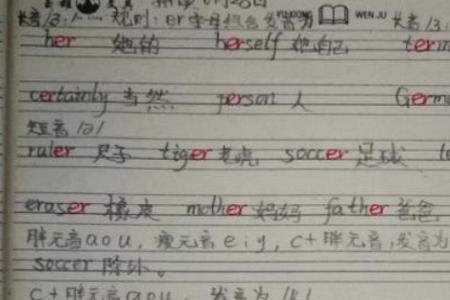 WEN JU
长音/ɜ:/ 规则:er字母组合发音为 长音/ɜ:
her 她的 herself 她自己 term
certainly 当然 person 人 Germ
短音/ə/
ruler 尺子 tiger 老虎 soccer 足球
eraser 橡皮 mother 妈妈 father 爸爸
胖元音 a o u, 瘦元音 e i y, c+胖元音,发音为
soccer 除外。
c+胖元音 a o u, 发音为 /k/